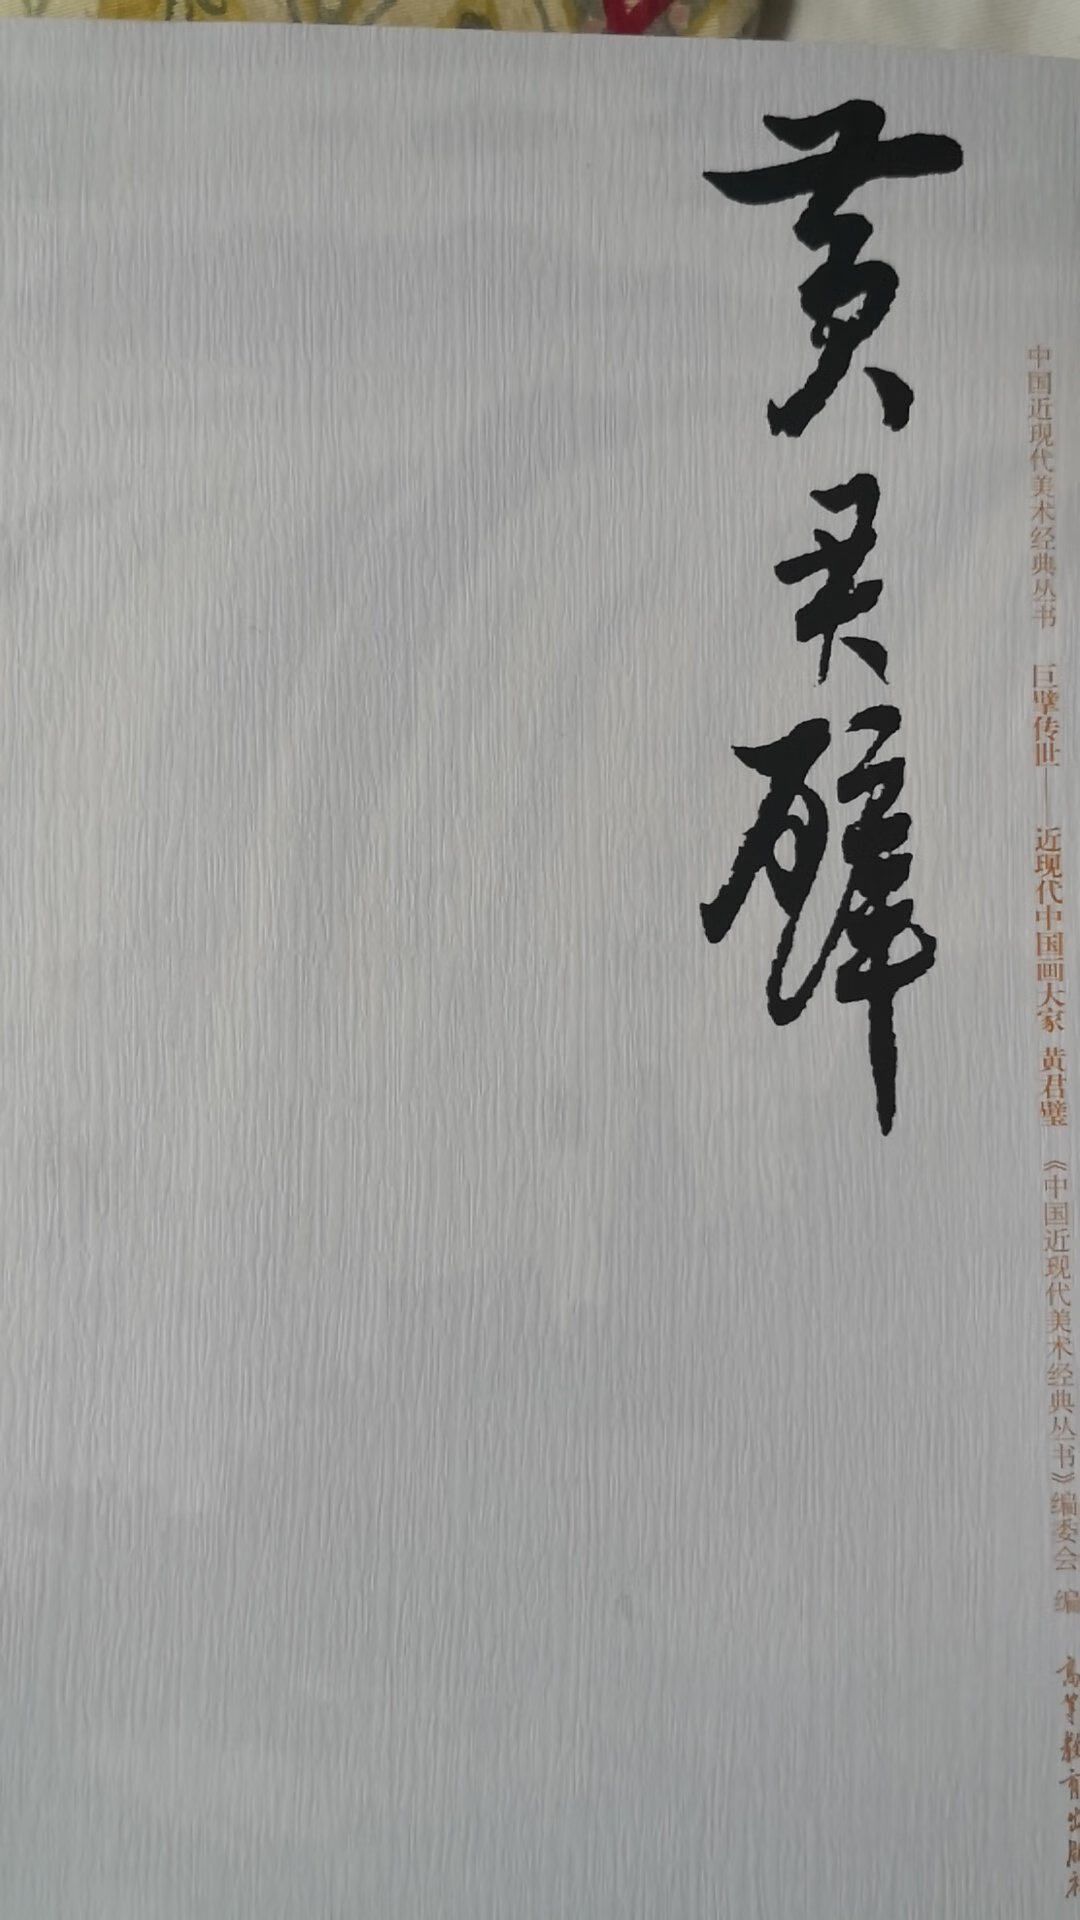 黄君璧
中国近现代美术经典丛书 巨擘传世——近现代中国画大家 黄君璧 《中国近现代美术经典丛书》编委会 编 高等教育出版社